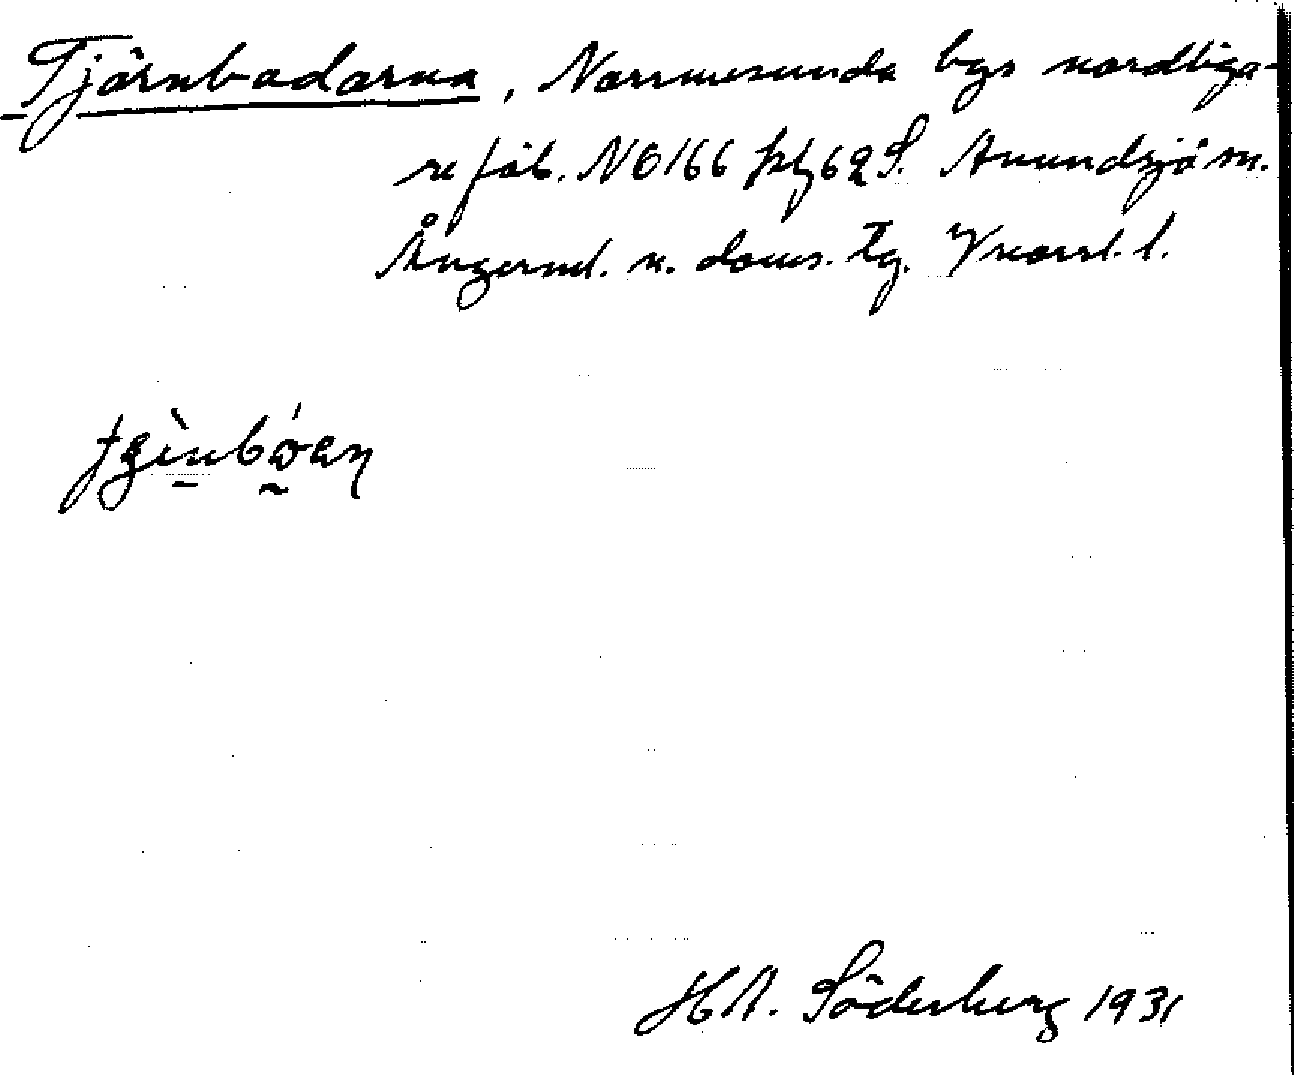 Tjärnbodarna, Norrmesunda bys nordliga-
re fäb. NO166 62 S. Anundsjö sn.
Ångerml. n. doms. tg. V norrl. l.
H A. Söderberg 1931